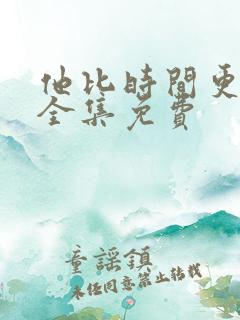 他比時間更
全集免費
童謠鎮
未经同意禁止转载